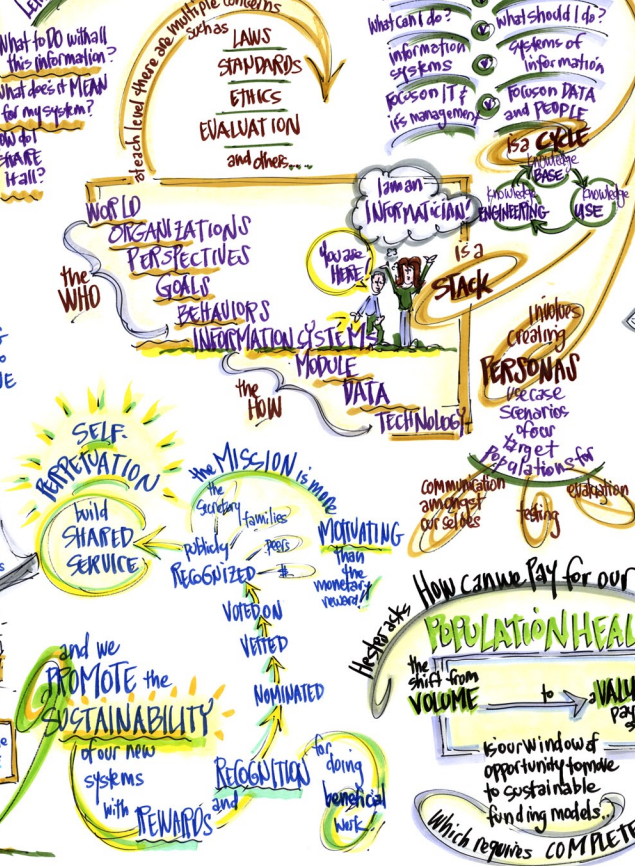 What to DO with all
this information?
What does it MEAN
for my system?
How do I
SHARE
it all?
at each level there are multiple concerns
such as
LAWS
STANDARDS
ETHICS
EVALUATION
and others....
What can I do?
What should I do?
information
systems
systems of
information
Focus on IT &
its management
Focus on DATA
and PEOPLE
is a CYCLE
knowledge
BASE
knowledge
ENGINEERING
knowledge
USE
I am an
INFORMATICIAN!
You are
HERE!
is a
STACK
the
WHO
WORLD
ORGANIZATIONS
PERSPECTIVES
GOALS
BEHAVIORS
INFORMATION SYSTEMS
the
HOW
MODULE
DATA
TECHNOLOGY
involves
creating
PERSONAS
use case
scenarios
of our
target
populations for
communication
amongst
ourselves
testing
evaluation
SELF-
PERPETUATION
build
SHARED
SERVICE
the MISSION is more
MOTIVATING
than
the
monetary
reward!
the
Secretary
families
peers
$
publicly
RECOGNIZED
VOTED ON
VETTED
NOMINATED
and we
PROMOTE the
SUSTAINABILITY
of our new
systems
with REWARDS
and
RECOGNITION
for
doing
beneficial
work.
Hester asks
How can we Pay for our
POPULATION HEAL
the
shift from
VOLUME
to
a VALU
pay
is our window of
opportunity to move
to sustainable
funding models...
which requires COMPLETE